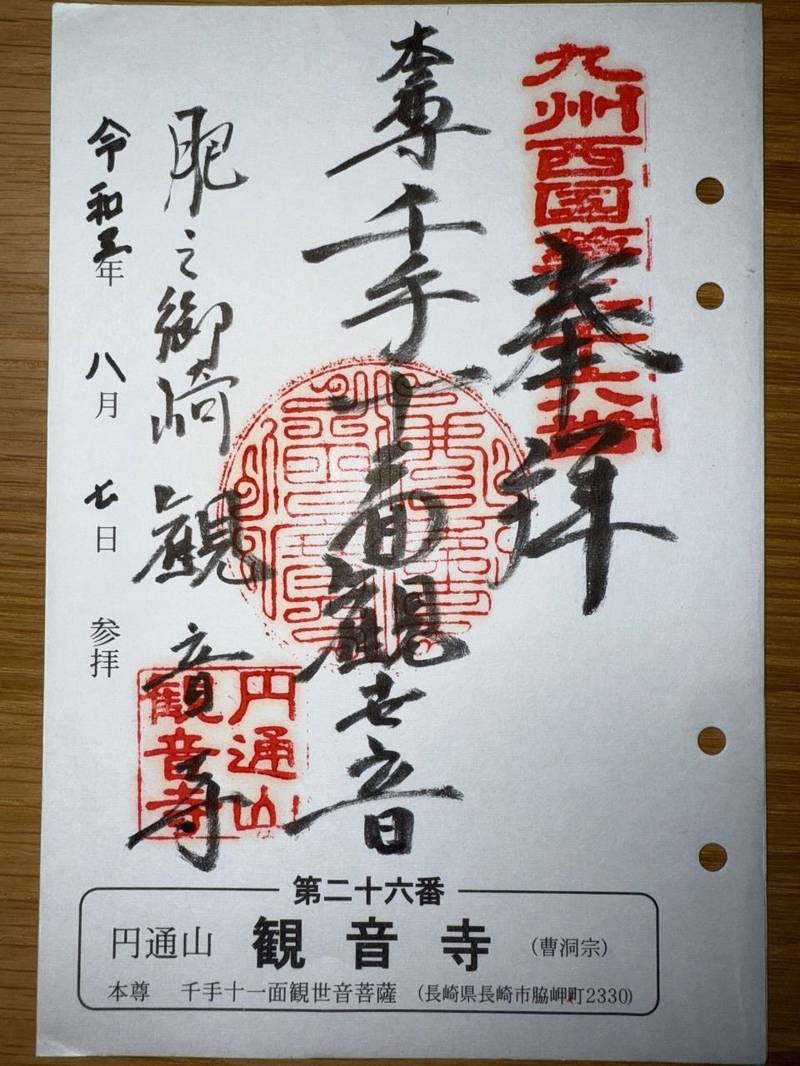 九州西國第二十六番
奉拝
本尊千手十一面観世音
肥之御崎 観音寺
円通山
観音寺
令和三年 八月 七日 参拝
第二十六番
円通山 観音寺 (曹洞宗)
本尊 千手十一面観世音菩薩 (長崎県長崎市脇岬町2330)